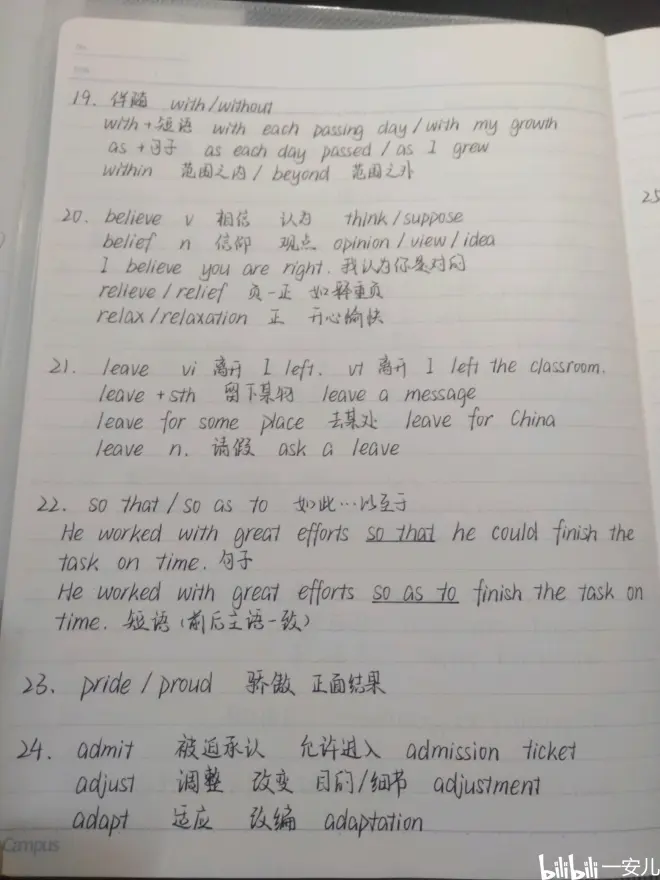 19. 伴随 with/without
with+短语 with each passing day/with my growth
as+句子 as each day passed/as I grew
within 范围之内/beyond 范围之外
20. believe v 相信 认为 think/suppose
belief n 信仰 观点 opinion/view/idea
I believe you are right. 我认为你是对的
relieve/relief 负-正 如释重负
relax/relaxation 正 开心愉快
21. leave vi 离开 I left. vt 离开 I left the classroom.
leave+sth 留下某物 leave a message
leave for some place 去某处 leave for China
leave n. 请假 ask a leave
22. so that/so as to 如此…以至于
He worked with great efforts so that he could finish the
task on time. 句子
He worked with great efforts so as to finish the task on
time. 短语(前后主语一致)
23. pride/proud 骄傲 正面结果
24. admit 被迫承认 允许进入 admission ticket
adjust 调整 改变 目的/细节 adjustment
adapt 适应 改编 adaptation
25
Campus
bilibili 一安儿